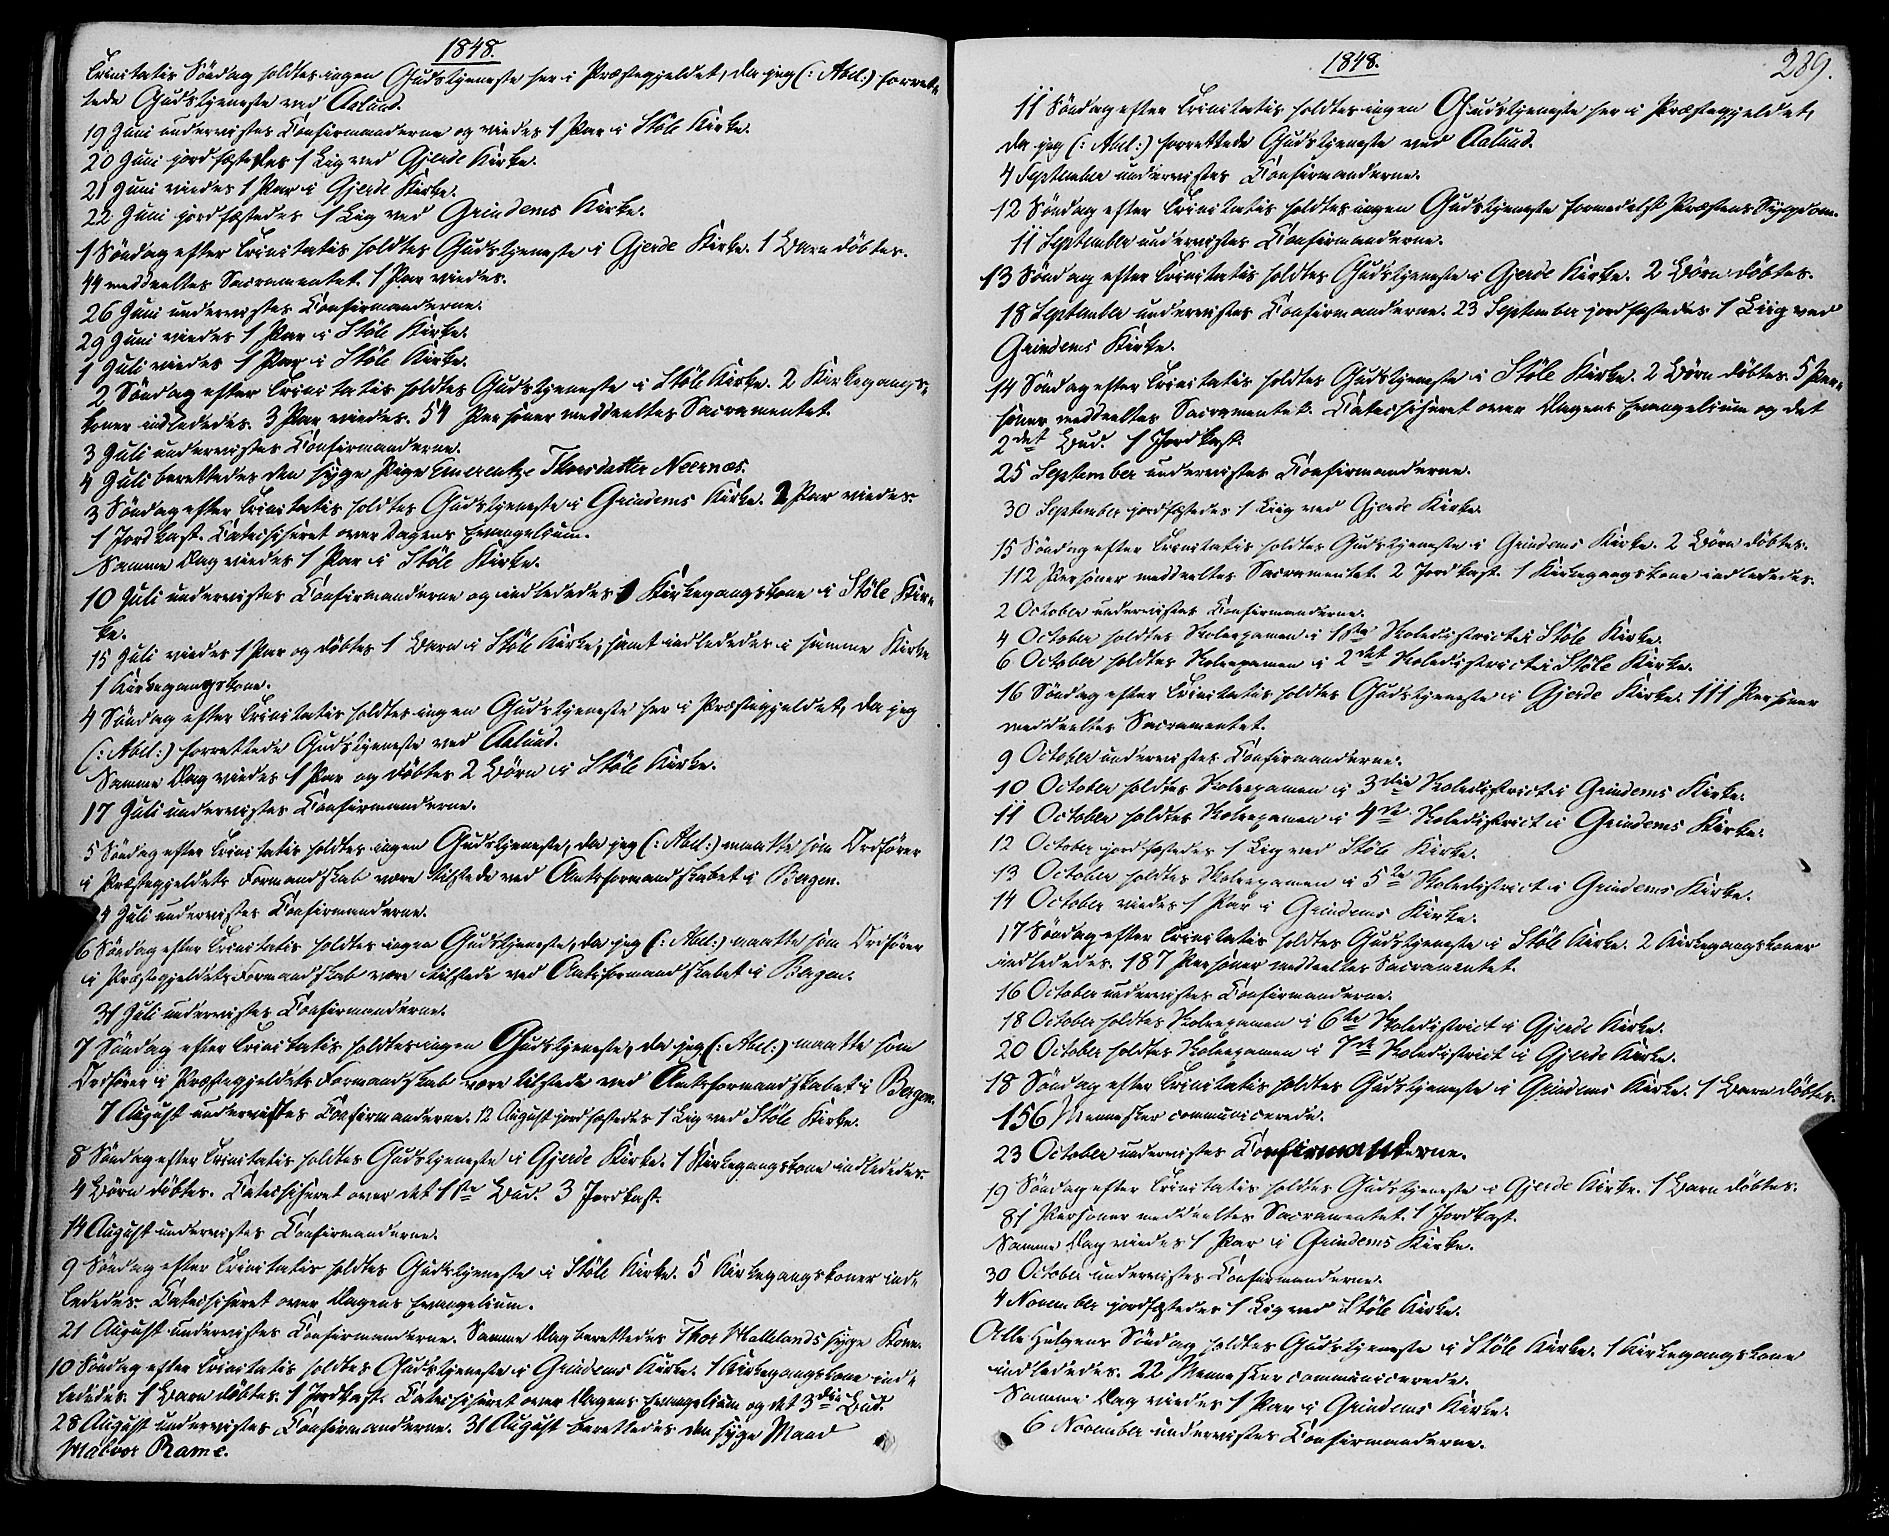 1848.
Trinitatis Söndag holdtes ingen Gudstjeneste her i Præstegjeldet, da jeg (: Abel:) forret-
tede Gudstjeneste ved Aalund.
19 Juni undervistes Confirmanderne og viedes 1 Par i Støle Kirke.
20 Juni jordfæstedes 1 Lig ved Gjerde Kirke.
21 Juni viedes 1 Par i Gjerde Kirke.
22 Juni jordfæstedes 1 Lig ved Grindems Kirke.
1 Söndag efter Trinitatis holdtes Gudstjeneste i Gjerde Kirke. 1 Barn döbtes.
44 meddeeltes Sacramentet. 1 Par viedes.
26 Juni undervistes Confirmanderne.
29 Juni viedes 1 Par i Støle Kirke.
1 Juli viedes 1 Par i Støle Kirke.
2 Söndag efter Trinitatis holdtes Gudstjeneste i Støle Kirke. 2 Kirkegangs-
koner indlededes. 3 Par viedes. 54 Personer meddeeltes Sacramentet.
3 Juli undervistes Confirmanderne.
4 Juli berettedes den syge Pige Emerentze Thorsdatter Neernæs.
3 Söndag efter Trinitatis holdtes Gudstjeneste i Grindems Kirke. 2 Par viedes.
1 Jordkast. Catechiseret over Dagens Evangelium.
Samme Dag viedes 1 Par i Støle Kirke.
10 Juli undervistes Confirmanderne og indlededes 1 Kirkegangskone i Støle Kir-
ke.
15 Juli viedes 1 Par og döbtes 1 Barn i Støle Kirke, samt indlededes i samme Kirke
1 Kirkegangskone.
4 Söndag efter Trinitatis holdtes ingen Gudstjeneste her i Præstegjeldet, da jeg
(: Abel:) forrettede Gudstjeneste ved Aalund.
Samme Dag viedes 1 Par og döbtes 2 Börn i Støle Kirke.
17 Juli undervistes Confirmanderne.
5 Söndag efter Trinitatis holdtes ingen Gudstjeneste, da jeg (: Abel:) maatte som Ordfører
i Præstegjeldets Formandskab være tilstede ved Amtsformandskabet i Bergen.
4 Juli undervistes Confirmanderne.
6 Söndag efter Trinitatis holdtes ingen Gudstjeneste, da jeg (: Abel:) maatte som Ordfører
i Præstegjeldets Formandskab være tilstede ved Amtsformandskabet i Bergen.
31 Juli undervistes Confirmanderne.
7 Söndag efter Trinitatis holdtes ingen Gudstjeneste, da jeg (: Abel:) maatte som
Ordfører i Præstegjeldets Formandskab være tilstede ved Amtsformandskabet i Bergen.
7 August undervistes Confirmanderne. 12 August jordfæstedes 1 Lig ved Støle Kirke.
8 Söndag efter Trinitatis holdtes Gudstjeneste i Gjerde Kirke. 1 Kirkegangskone indlededes.
4 Börn döbtes. Catechiseret over det 1ste Bud. 3 Jordkast.
14 August undervistes Confirmanderne.
9 Söndag efter Trinitatis holdtes Gudstjeneste i Støle Kirke. 5 Kirkegangskoner ind-
lededes. Catechiseret over Dagens Evangelium.
21 August undervistes Confirmanderne. Samme Dag berettedes Thor Hallelands syge Kone.
10 Söndag efter Trinitatis holdtes Gudstjeneste i Grindems Kirke. 1 Kirkegangskone ind-
lededes. 1 Barn döbtes. 1 Jordkast. Catechiseret over Dagens Evangelium og det 3die Bud.
28 August undervistes Confirmanderne. 31 August berettedes den syge Mand
Halvor Rame.
1848.
289.
11 Söndag efter Trinitatis holdtes ingen Gudstjeneste her i Præstegjeldet,
da jeg (: Abel:) forrettede Gudstjeneste ved Aalund.
4 September undervistes Confirmanderne.
12 Söndag efter Trinitatis holdtes ingen Gudstjeneste formedelst Præstens Sygdom.
11 September undervistes Confirmanderne.
13 Söndag efter Trinitatis holdtes Gudstjeneste i Gjerde Kirke. 2 Börn döbtes.
18 September undervistes Confirmanderne. 23 September jordfæstedes 1 Liig ved
Grindems Kirke.
14 Söndag efter Trinitatis holdtes Gudstjeneste i Støle Kirke. 2 Börn döbtes. 5 Per-
soner meddeeltes Sacramentet. Catechiseret over Dagens Evangelium og det
2det Bud. 1 Jordkast.
25 September undervistes Confirmanderne.
30 September jordfæstedes 1 Liig ved Gjerde Kirke.
15 Söndag efter Trinitatis holdtes Gudstjeneste i Grindems Kirke. 2 Börn döbtes.
112 Personer meddeeltes Sacramentet. 2 Jordkast. 1 Kirkegangskone indlededes.
2 October undervistes Confirmanderne.
4 October holdtes Skoleexamen i 1ste Skoledistrict i Støle Kirke.
6 October holdtes Skoleexamen i 2det Skoledistrict i Støle Kirke.
16 Söndag efter Trinitatis holdtes Gudstjeneste i Gjerde Kirke. 111 Personer
meddeeltes Sacramentet.
9 October undervistes Confirmanderne.
10 October holdtes Skoleexamen i 3die Skoledistrict i Grindems Kirke.
11 October holdtes Skoleexamen i 4de Skoledistrict i Grindems Kirke.
12 October jordfæstedes 1 Liig ved Støle Kirke.
13 October holdtes Skoleexamen i 5te Skoledistrict i Grindems Kirke.
14 October viedes 1 Par i Grindems Kirke.
17 Söndag efter Trinitatis holdtes Gudstjeneste i Støle Kirke. 2 Kirkegangskoner
indlededes. 187 Personer meddeeltes Sacramentet.
16 October undervistes Confirmanderne.
18 October holdtes Skoleexamen i 6te Skoledistrict i Gjerde Kirke.
20 October holdtes Skoleexamen i 7de Skoledistrict i Gjerde Kirke.
18 Söndag efter Trinitatis holdtes Gudstjeneste i Grindems Kirke. 1 Barn döbtes.
156 Mennesker communicerede.
23 October undervistes Confirmanderne.
19 Söndag efter Trinitatis holdtes Gudstjeneste i Gjerde Kirke. 1 Barn döbtes.
81 Personer meddeeltes Sacramentet. 1 Jordkast.
Samme Dag viedes 1 Par i Grindems Kirke.
30 October undervistes Confirmanderne.
4 November jordfæstedes 1 Lig ved Støle Kirke.
Alle Helgens Söndag holdtes Gudstjeneste i Støle Kirke. 1 Kirkegangskone
indlededes. 22 Mennesker communicerede.
Samme Dag viedes 1 Par i Grindems Kirke.
6 November undervistes Confirmanderne.